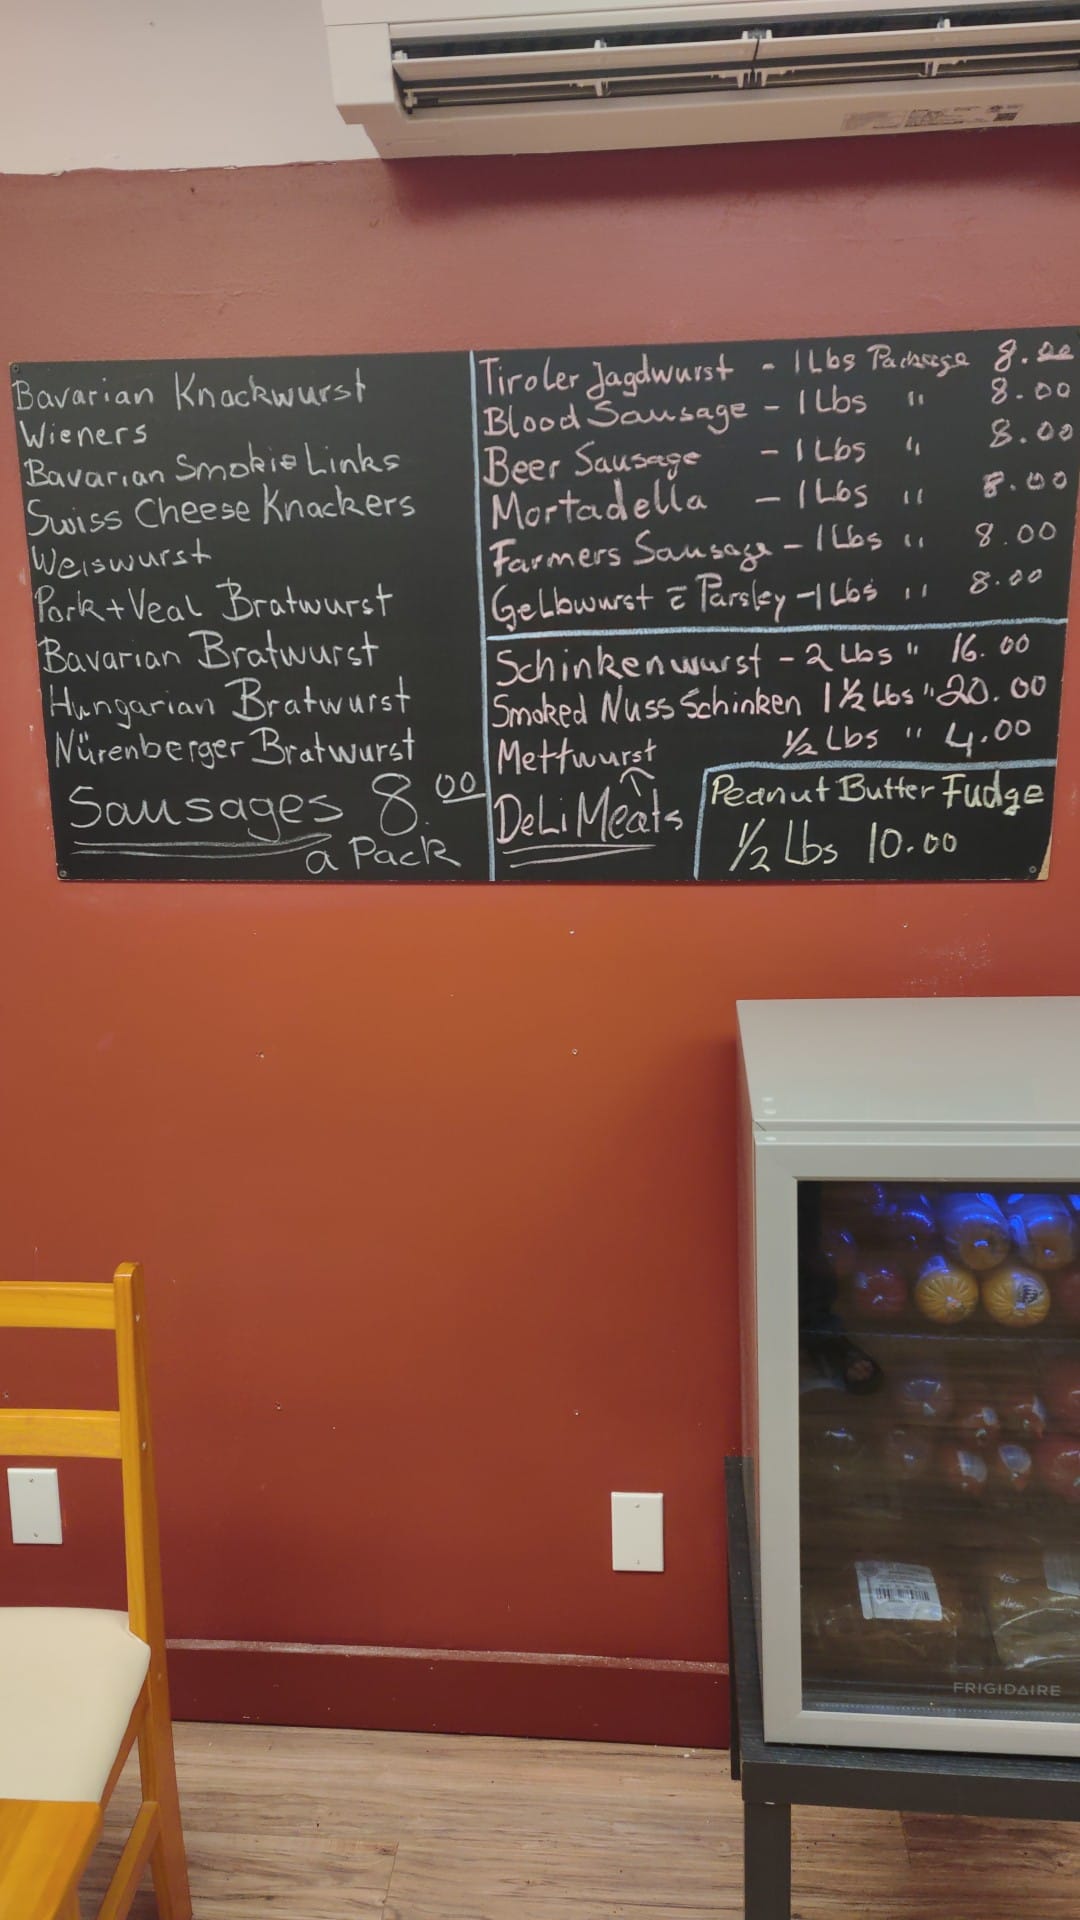 Bavarian Knackwurst
Wieners
Bavarian Smokie Links
Swiss Cheese Knackers
Weiswurst
Pork + Veal Bratwurst
Bavarian Bratwurst
Hungarian Bratwurst
Nürenberger Bratwurst
Sausages 8.00
a Pack
Tiroler Jagdwurst - 1 Lbs Package 8.00
Blood Sausage - 1 Lbs " 8.00
Beer Sausage - 1 Lbs " 8.00
Mortadella - 1 Lbs " 8.00
Farmers Sausage - 1 Lbs " 8.00
Gelbwurst c̄ Parsley - 1 Lbs " 8.00
Schinkenwurst - 2 Lbs " 16.00
Smoked Nuss Schinken 1 ½ Lbs " 20.00
Mettwurst ½ Lbs " 4.00
Deli Meats
Peanut Butter Fudge
½ Lbs 10.00
FRIGIDAIRE